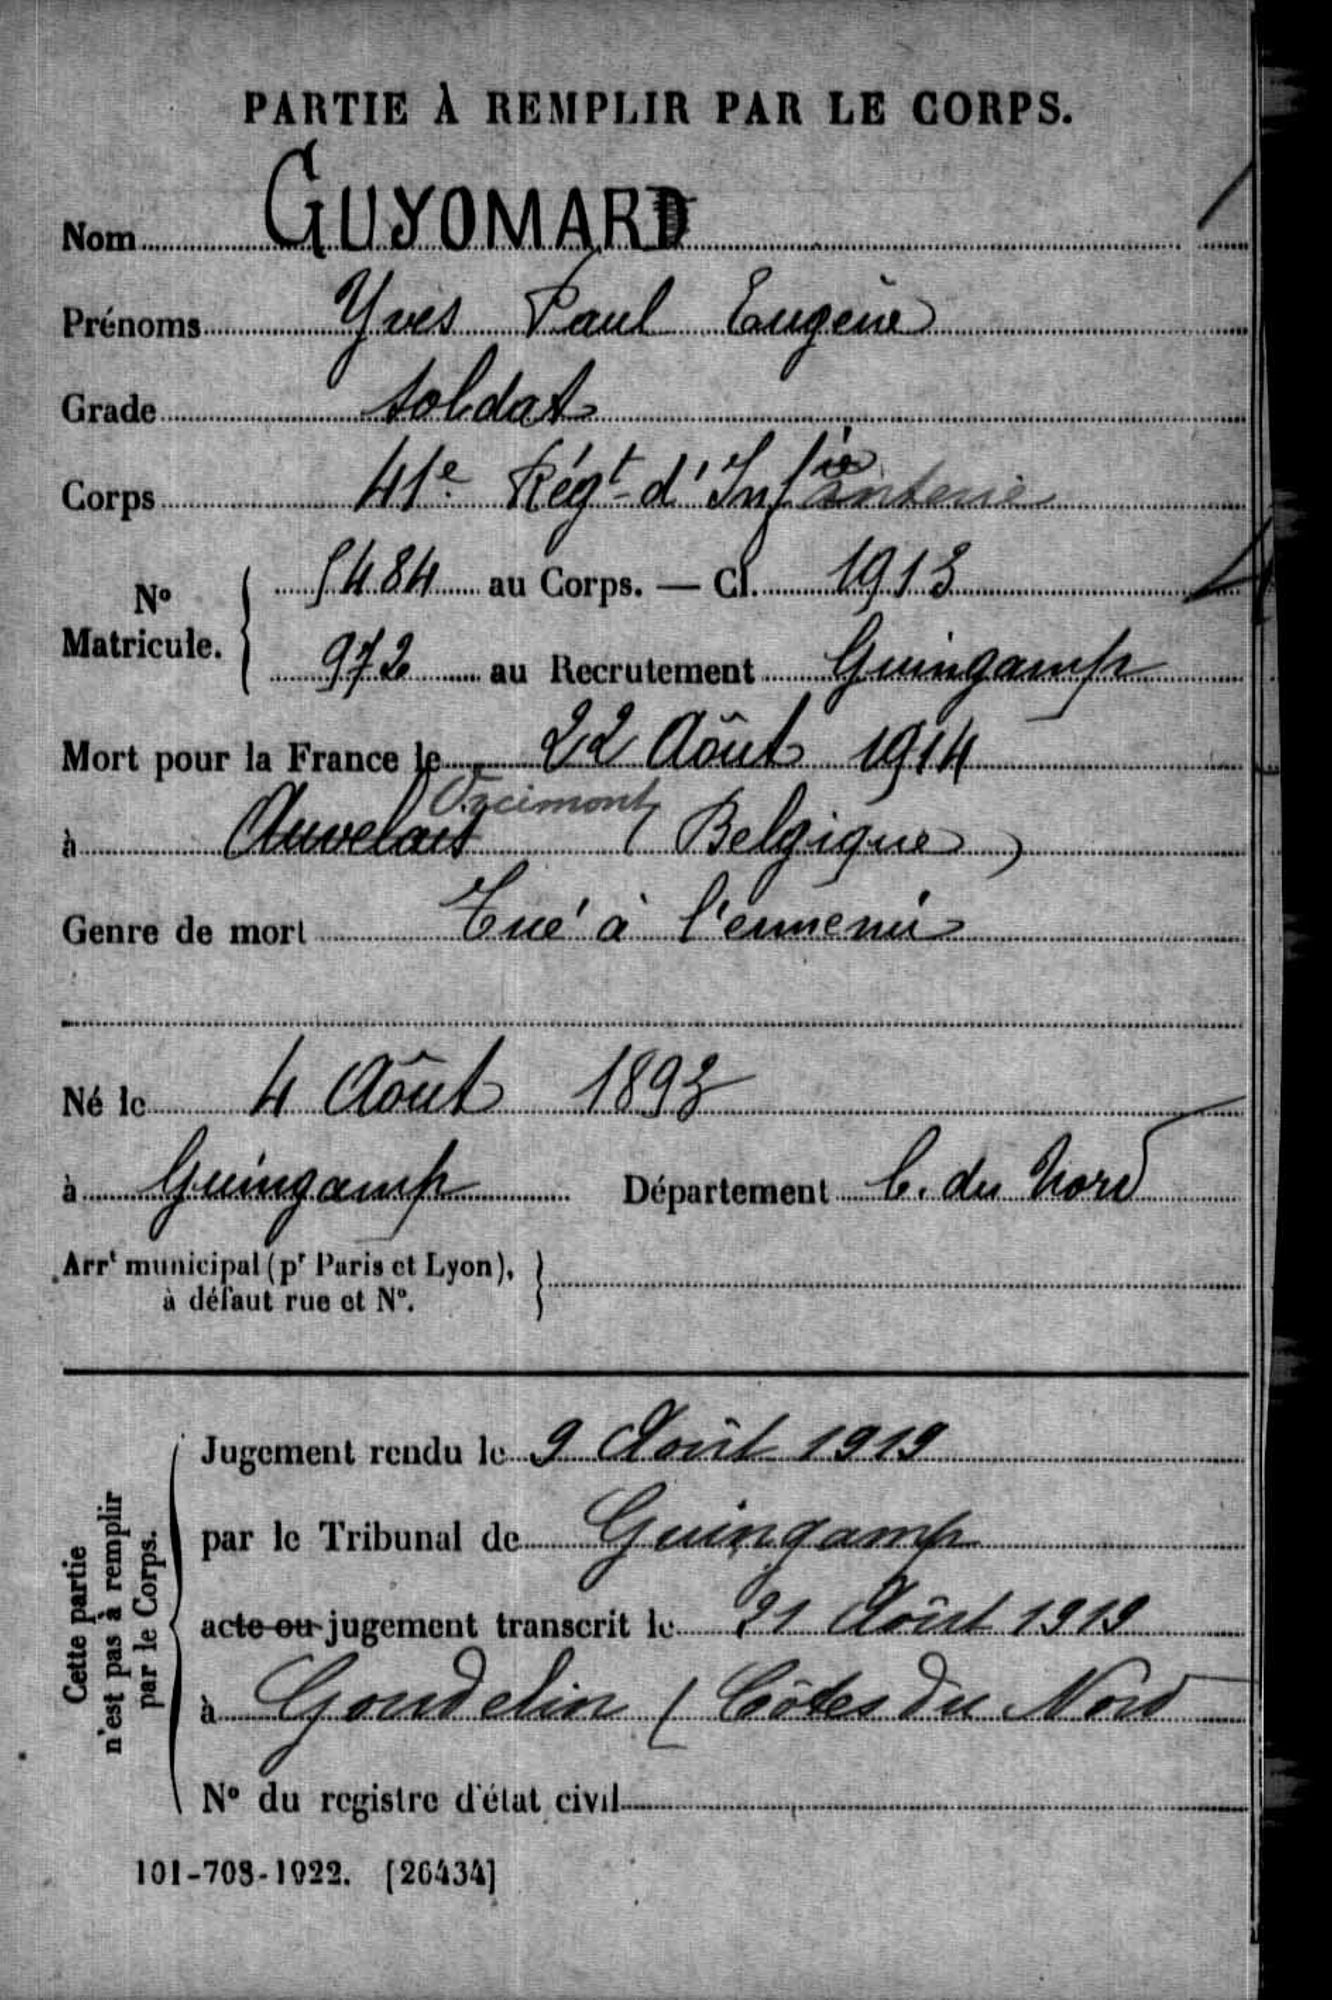 PARTIE À REMPLIR PAR LE CORPS.
Nom GUYOMARD
Prénoms Yves Paul Eugène
Grade soldat
Corps 41e Régt d'Infie anterie
No Matricule. 5484 au Corps. — Cl. 1913
972 au Recrutement Guingamp
Mort pour la France le 22 Août 1914
Orcimont
à Auvelais (Belgique)
Genre de mort Tué à l'ennemi
Né le 4 Août 1893
à Guingamp Département C. du Nord
Arrt municipal (pr Paris et Lyon),
à défaut rue et No.
Cette partie
n'est pas à remplir
par le Corps.
Jugement rendu le 9 Août 1919
par le Tribunal de Guingamp
acte ou jugement transcrit le 21 Août 1919
à Goudelin (Côtes du Nord
No du registre d'état civil
101-708-1922. [26434]